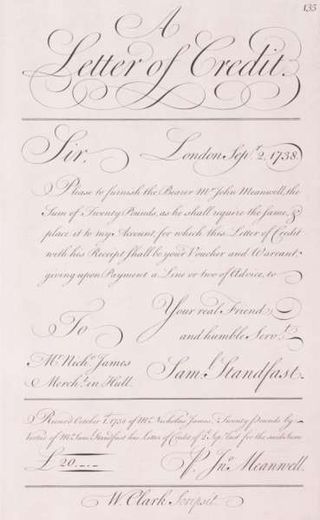 135
A
Letter of Credit.
Sir. London Sept. 2, 1738.
Please to furnish the Bearer Mr. John Meanwell, the
Sum of Twenty Pounds, as he shall require the same, &
place it to my Account, for which this Letter of Credit
with his Receipt shall be your Voucher and Warrant;
giving upon Payment a Line or two of Advice, to
Your real Friend
To and humble Servt.
Mr. Nichs. James
Mercht. in Hull. Saml. Standfast.
Received October 1st. 1738 of Mr. Nicholas James, Twenty Pounds by
Virtue of Mr. Saml. Standfast his Letter of Credit of 2d. Sept. last for the said Sum
£ 20.-.- P. Jno. Meanwell.
W. Clark Scripsit.